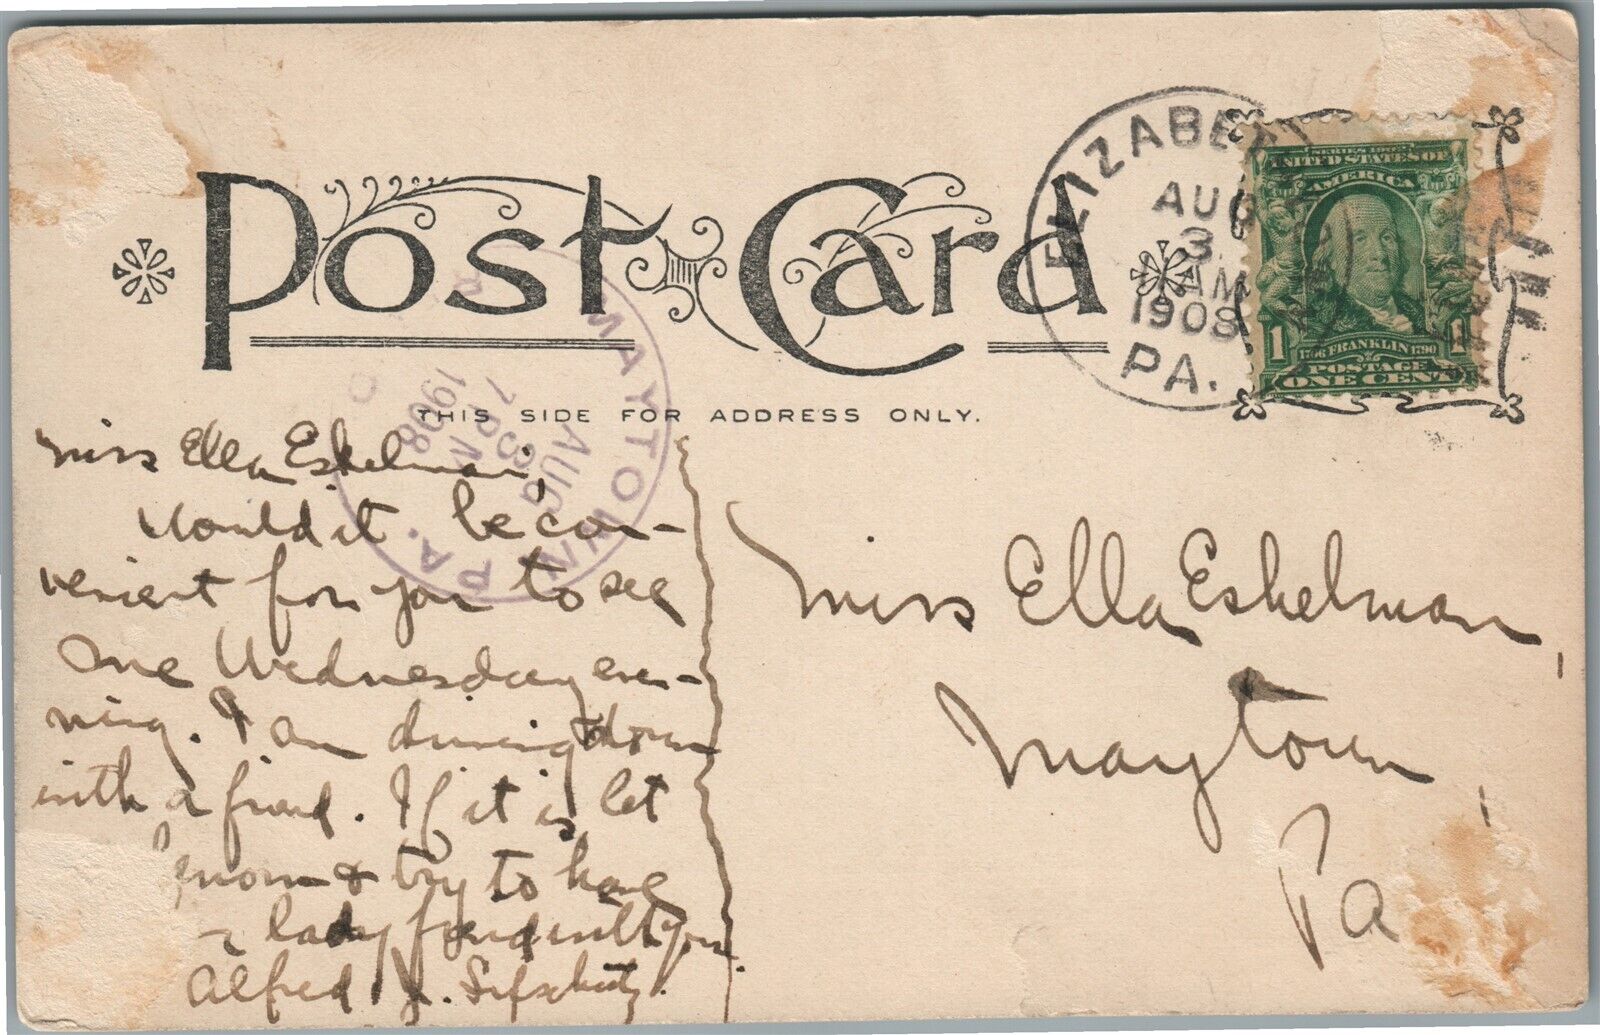 Post Card
THIS SIDE FOR ADDRESS ONLY.
ELIZABET
AUG
3.
AM
1908
PA.
SERIES 1902
UNITED STATES OF
AMERICA
1 1
1706 FRANKLIN 1790
POSTAGE
ONE CENT
MAYTOWN
AUG
3
7 PM
1908
PA.
Miss Ella Eshelman,
Would it be con-
venient for you to see
me Wednesday eve-
ning. I am driving down
with a friend. If it is let
know & try to have
a lady friend with you.
Alfred
Miss Ella Eshelman,
Maytown,
Pa